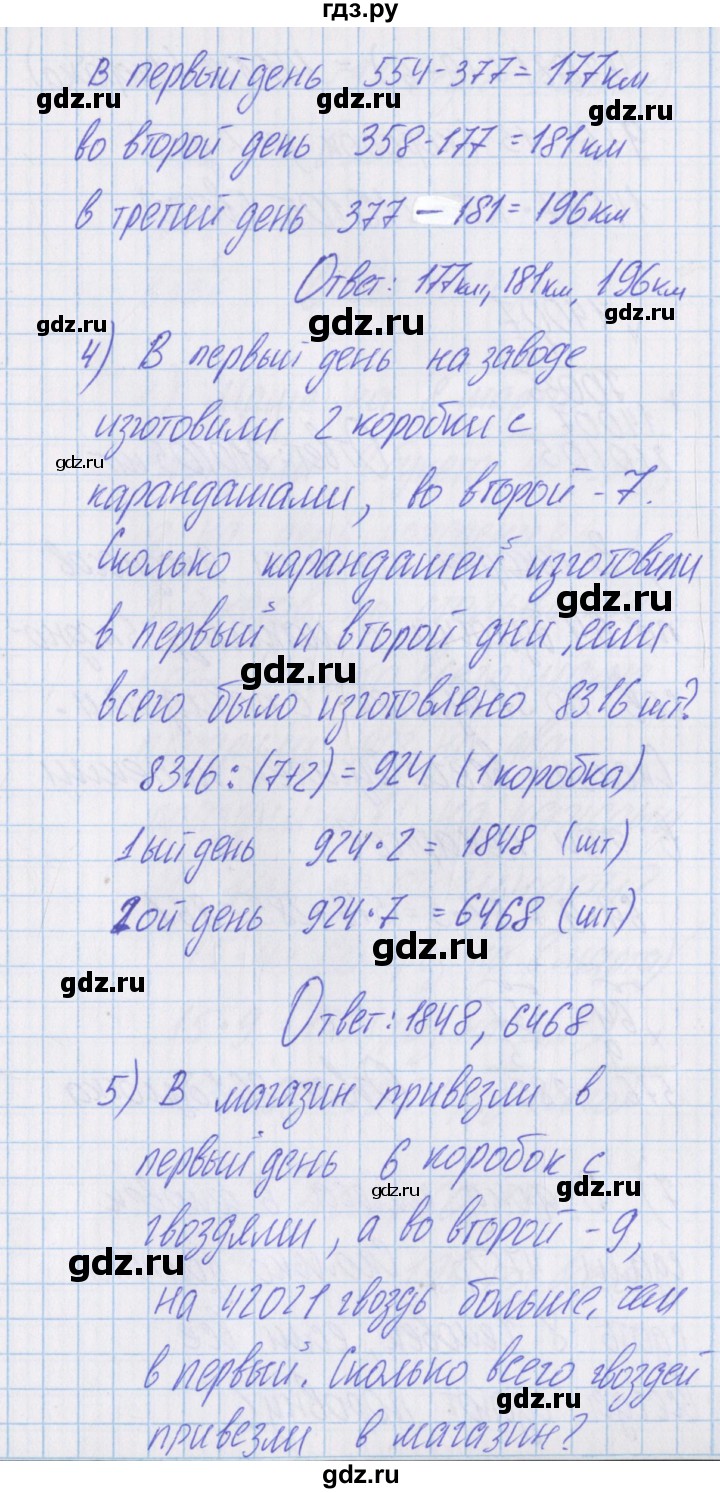 гдз.ру
В первый день 554-377= 177км
gdz.ru gdz.ru gdz.ru
во второй день 358-177 =181км
в третий день 377 - 181= 196км
gdz.ru gdz.ru
Ответ: 177км, 181км, 196км
gdz.ru gdz.ru gdz.ru
4) В первый день на заводе
изготовили 2 коробки с
gdz.ru
карандашами, во второй -7.
Сколько карандашей изготовили
gdz.ru
в первый и второй дни, если
gdz.ru
всего было изготовлено 8316 шт?
8316 : (7+2) = 924 (1 коробка)
1ый день 924·2 = 1848 (шт)
2ой день 924·7 = 6468 (шт)
gdz.ru
gdz.ru
Ответ: 1848, 6468
5) В магазин привезли в
первый день 6 коробок с
gdz.ru gdz.ru
гвоздями, а во второй -9,
gdz.ru
на 42021 гвоздь больше, чем
в первый. Сколько всего гвоздей
gdz.ru
привезли в магазин?
gdz.ru